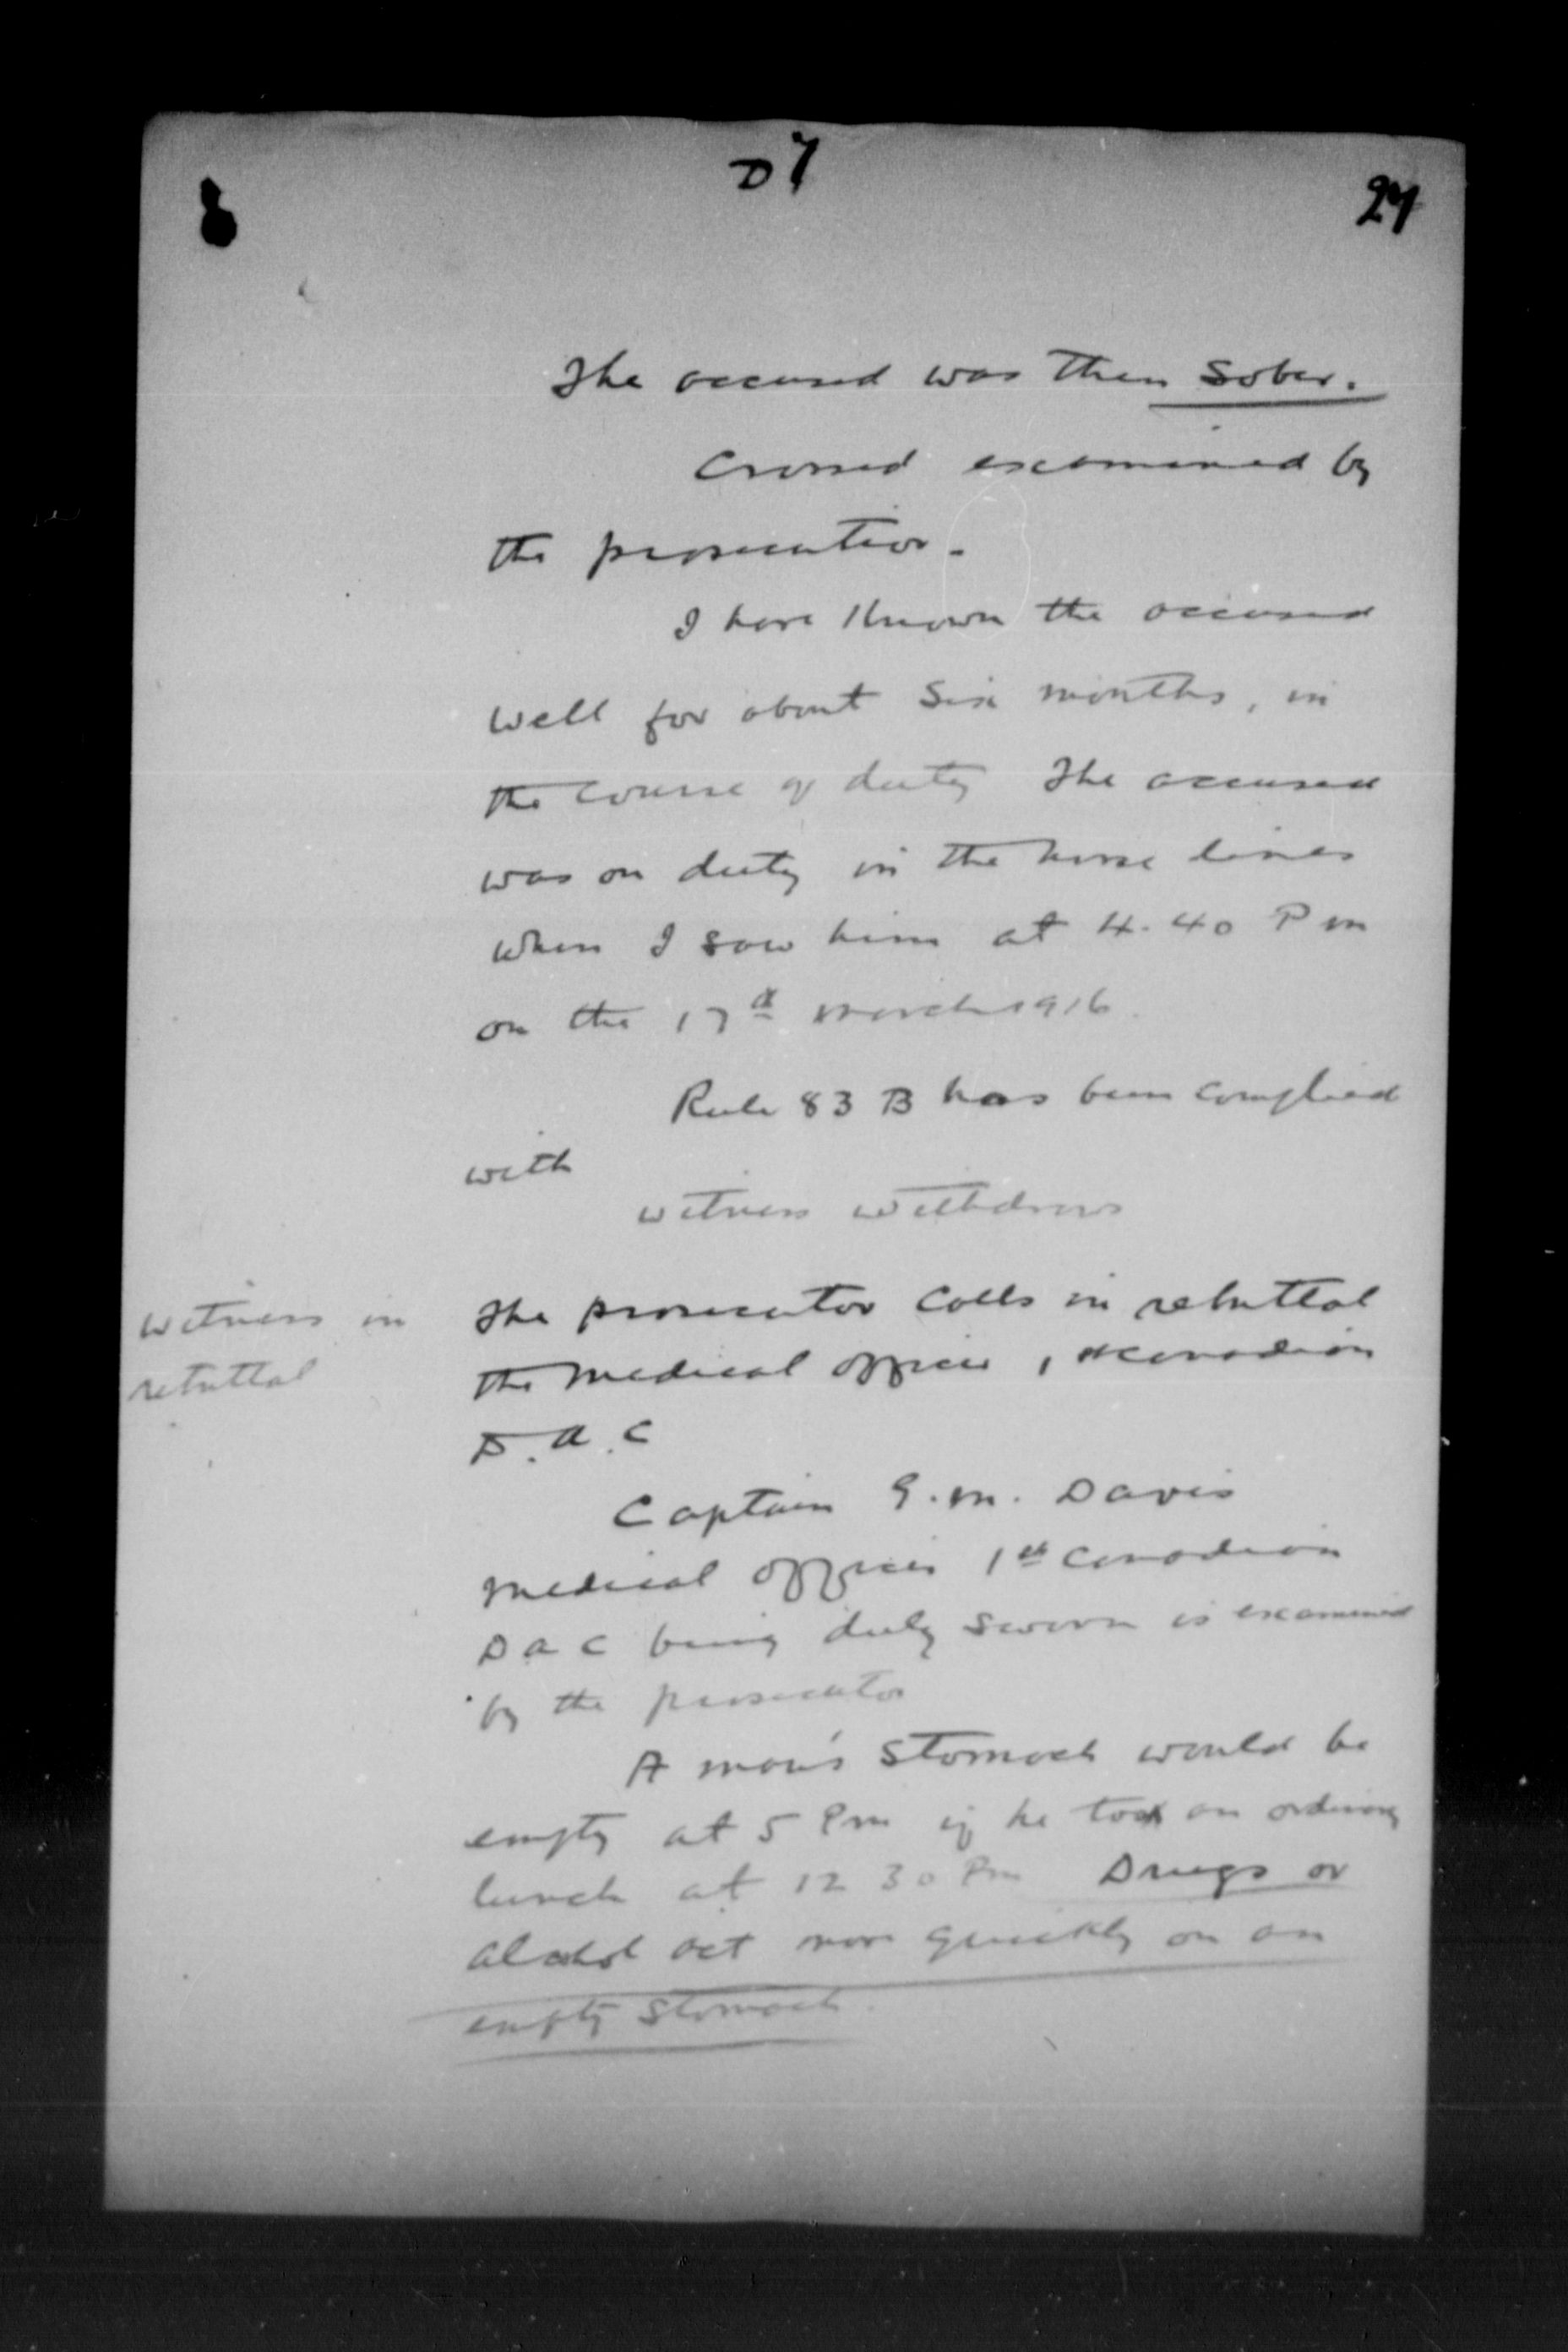 D7
27
The accused was then sober.
Crossed examined by
the prosecution.
I have known the accused
well for about six months, in
the course of duty The accused
was on duty in the horse lines
when I saw him at 4.40 Pm
on the 17th March 1916.
Rule 83 B has been complied
with
witness withdraws
witness in
rebuttal
The prosecutor calls in rebuttal
the medical officer, 1st Canadian
D.A.C
Captain G.M. Davis
medical officer 1st Canadian
D A C being duly sworn is examined
by the prosecutor
A man's stomach would be
empty at 5 Pm if he took an ordinary
lunch at 12 30 Pm Drugs or
alcohol act more quickly on an
empty stomach.